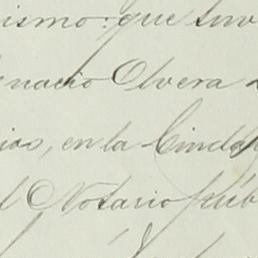 ismo: que tuv
gnacio Olvera
ios, en la Ciuda
l Notario púb